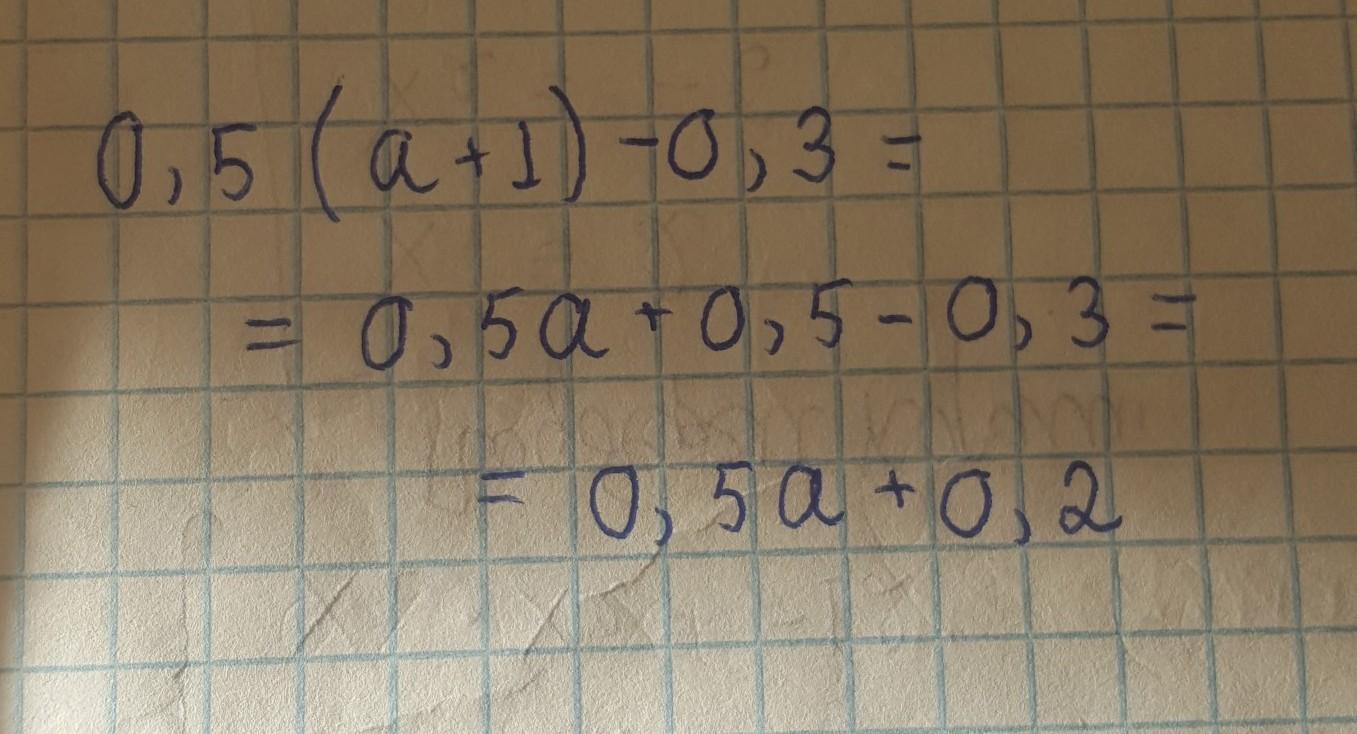 0,5(a+1)-0,3=
= 0,5a+0,5-0,3=
= 0,5a+0,2